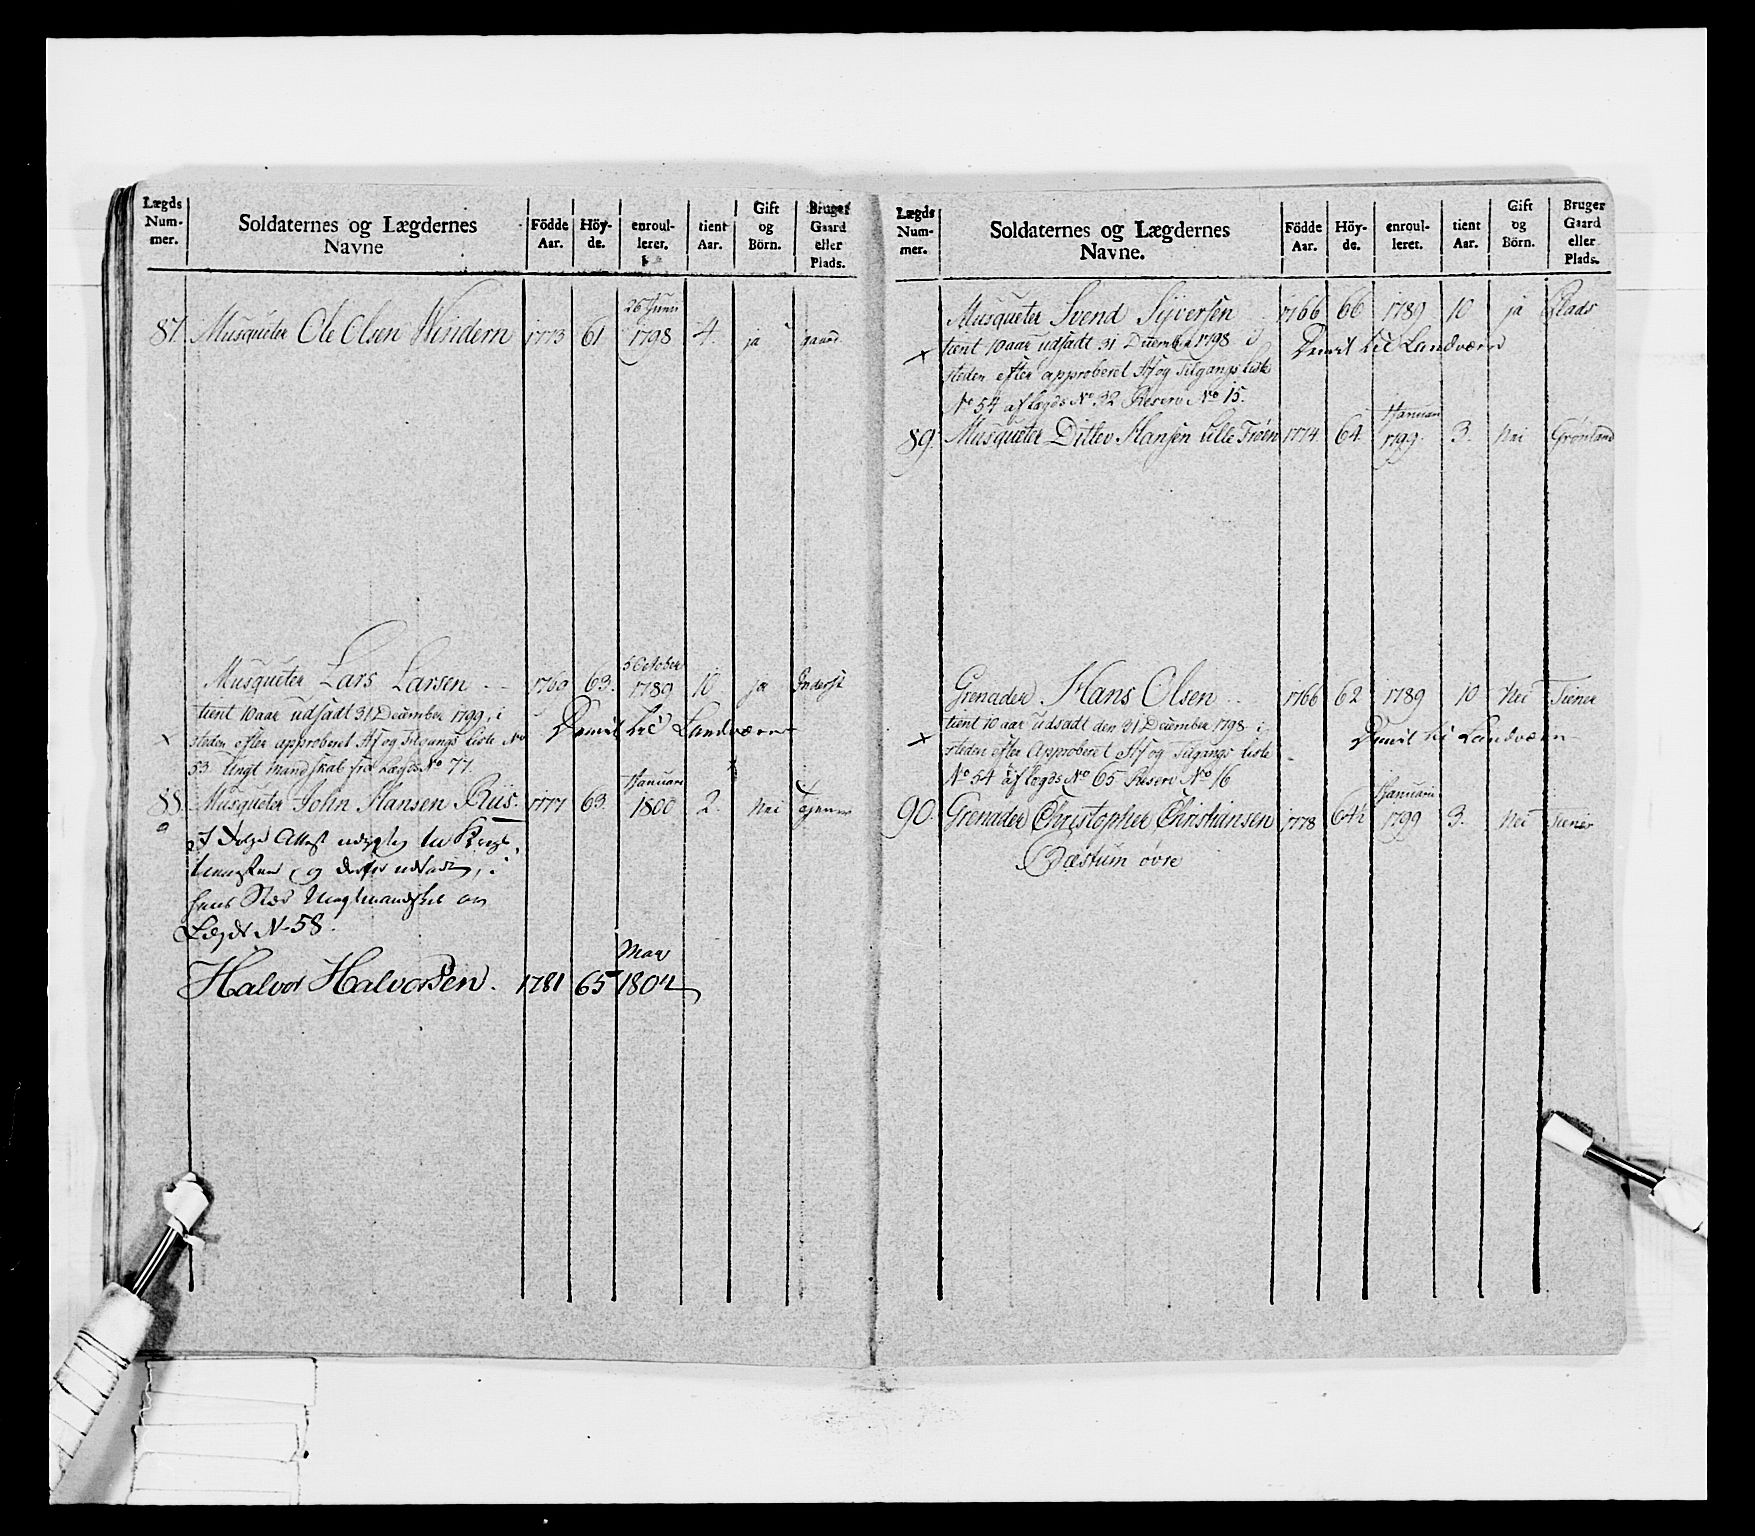 Lægds Num- mer.
Soldaternes og Lægdernes Navne
Födde Aar.
Höy- de.
enroul- leret.
tient Aar.
Gift og Börn.
Bruger Gaard eller Plads.
26 Junii
87. Musqueter Ole Olsen Vindern 1773 61 1798 4. ja gaard
5 October
Musqueter Lars Larsen 1760 63. 1789 10 ja Inderst
tient 10 aar udsadt 31 December 1799, i
Demit til Landværn
steden efter approberet Af og Tilgangs Liste No
53. Ungt mandskab fra Lægds No 77.
Januari
88. Musqueter John Hansen Riis. 1777 63. 1800 2. Nei
og derfor udsadt, i
hans Sted Ungtmandskab af
Lægds N. 58.
May
Halvor Halvorsen. 1781 65 1802
Lægds Num- mer.
Soldaternes og Lægdernes Navne.
Födde Aar.
Höy- de.
enroul- leret.
tient Aar.
Gift og Börn.
Bruger Gaard eller Plads.
Musqueter Svend Syversen 1766 66 1789 10 ja Plads
tient 10 aar udsadt 31 December 1798 i
Demit til Landværn
steden efter approberet Af og Tilgangs Liste
No 54 af Lægds No 32 Reserv No 15.
Januari
89. Musqueter Ditlev Hansen Lille Frøen 1774 64. 1799. 3. Nei Grønland
Grenader Hans Olsen 1766 62 1789 10 Nei Tiener
tient 10 aar udsadt den 31 December 1798 i
Demit til Landværn
steden efter Approberet Af og Tilgangs Liste
No 54 af Lægds No 65 Reserv No 16
Januarii
90. Grenader Christopher Christiansen 1778 64½ 1799 3. Nei Tiener
Bæstum øvre